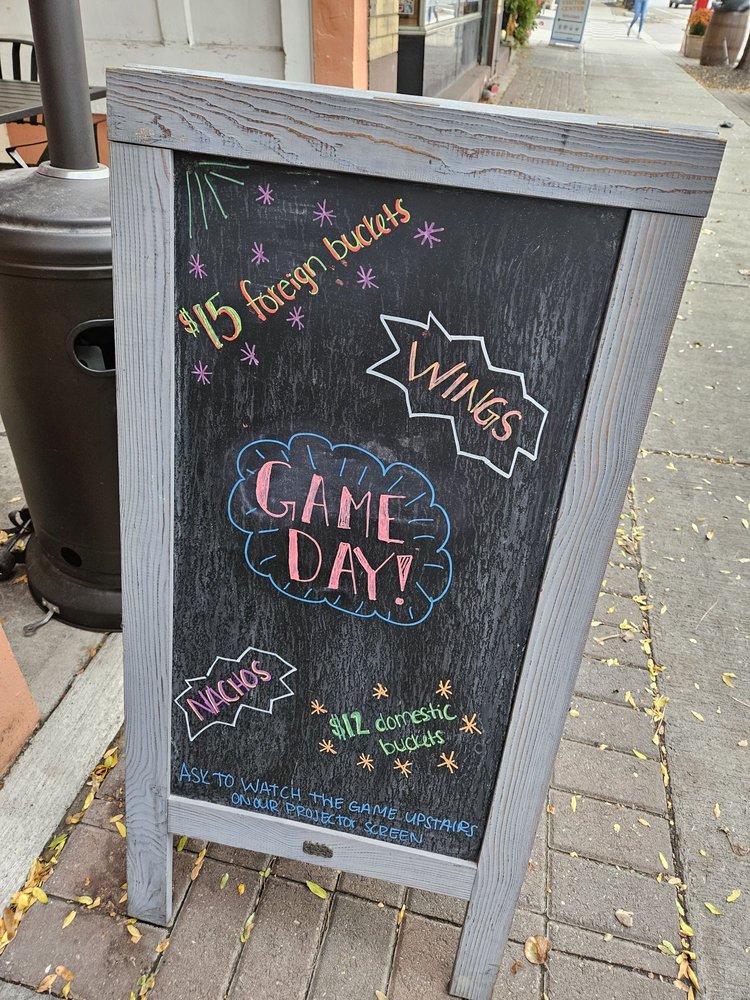 $15 foreign buckets
WINGS
GAME
DAY!
NACHOS
$12 domestic
buckets
ASK TO WATCH THE GAME UPSTAIRS
ON OUR PROJECTOR SCREEN
VISITOR
CENTER